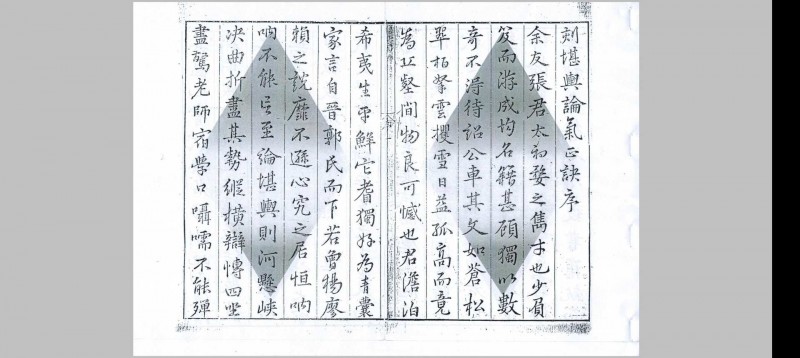 刻堪輿論氣正訣序
余友張君太初婺之雋才也少負
笈而游成均名籍甚頎獨以數
奇不淂待詔公車其文如蒼松
翠柏拏雲攫雪日益孤高而竟
為丘壑間物良可憾也君澹泊
希夷生平鮮它耆獨好為青囊
家言自晉郭氏而下若曾楊廖
賴之說靡不遜心究之居恒吶
吶不能言至論堪輿則河懸峽
决曲折盡其勢縱橫辯慱四坐
盡驚老師宿學口囁嚅不能殫